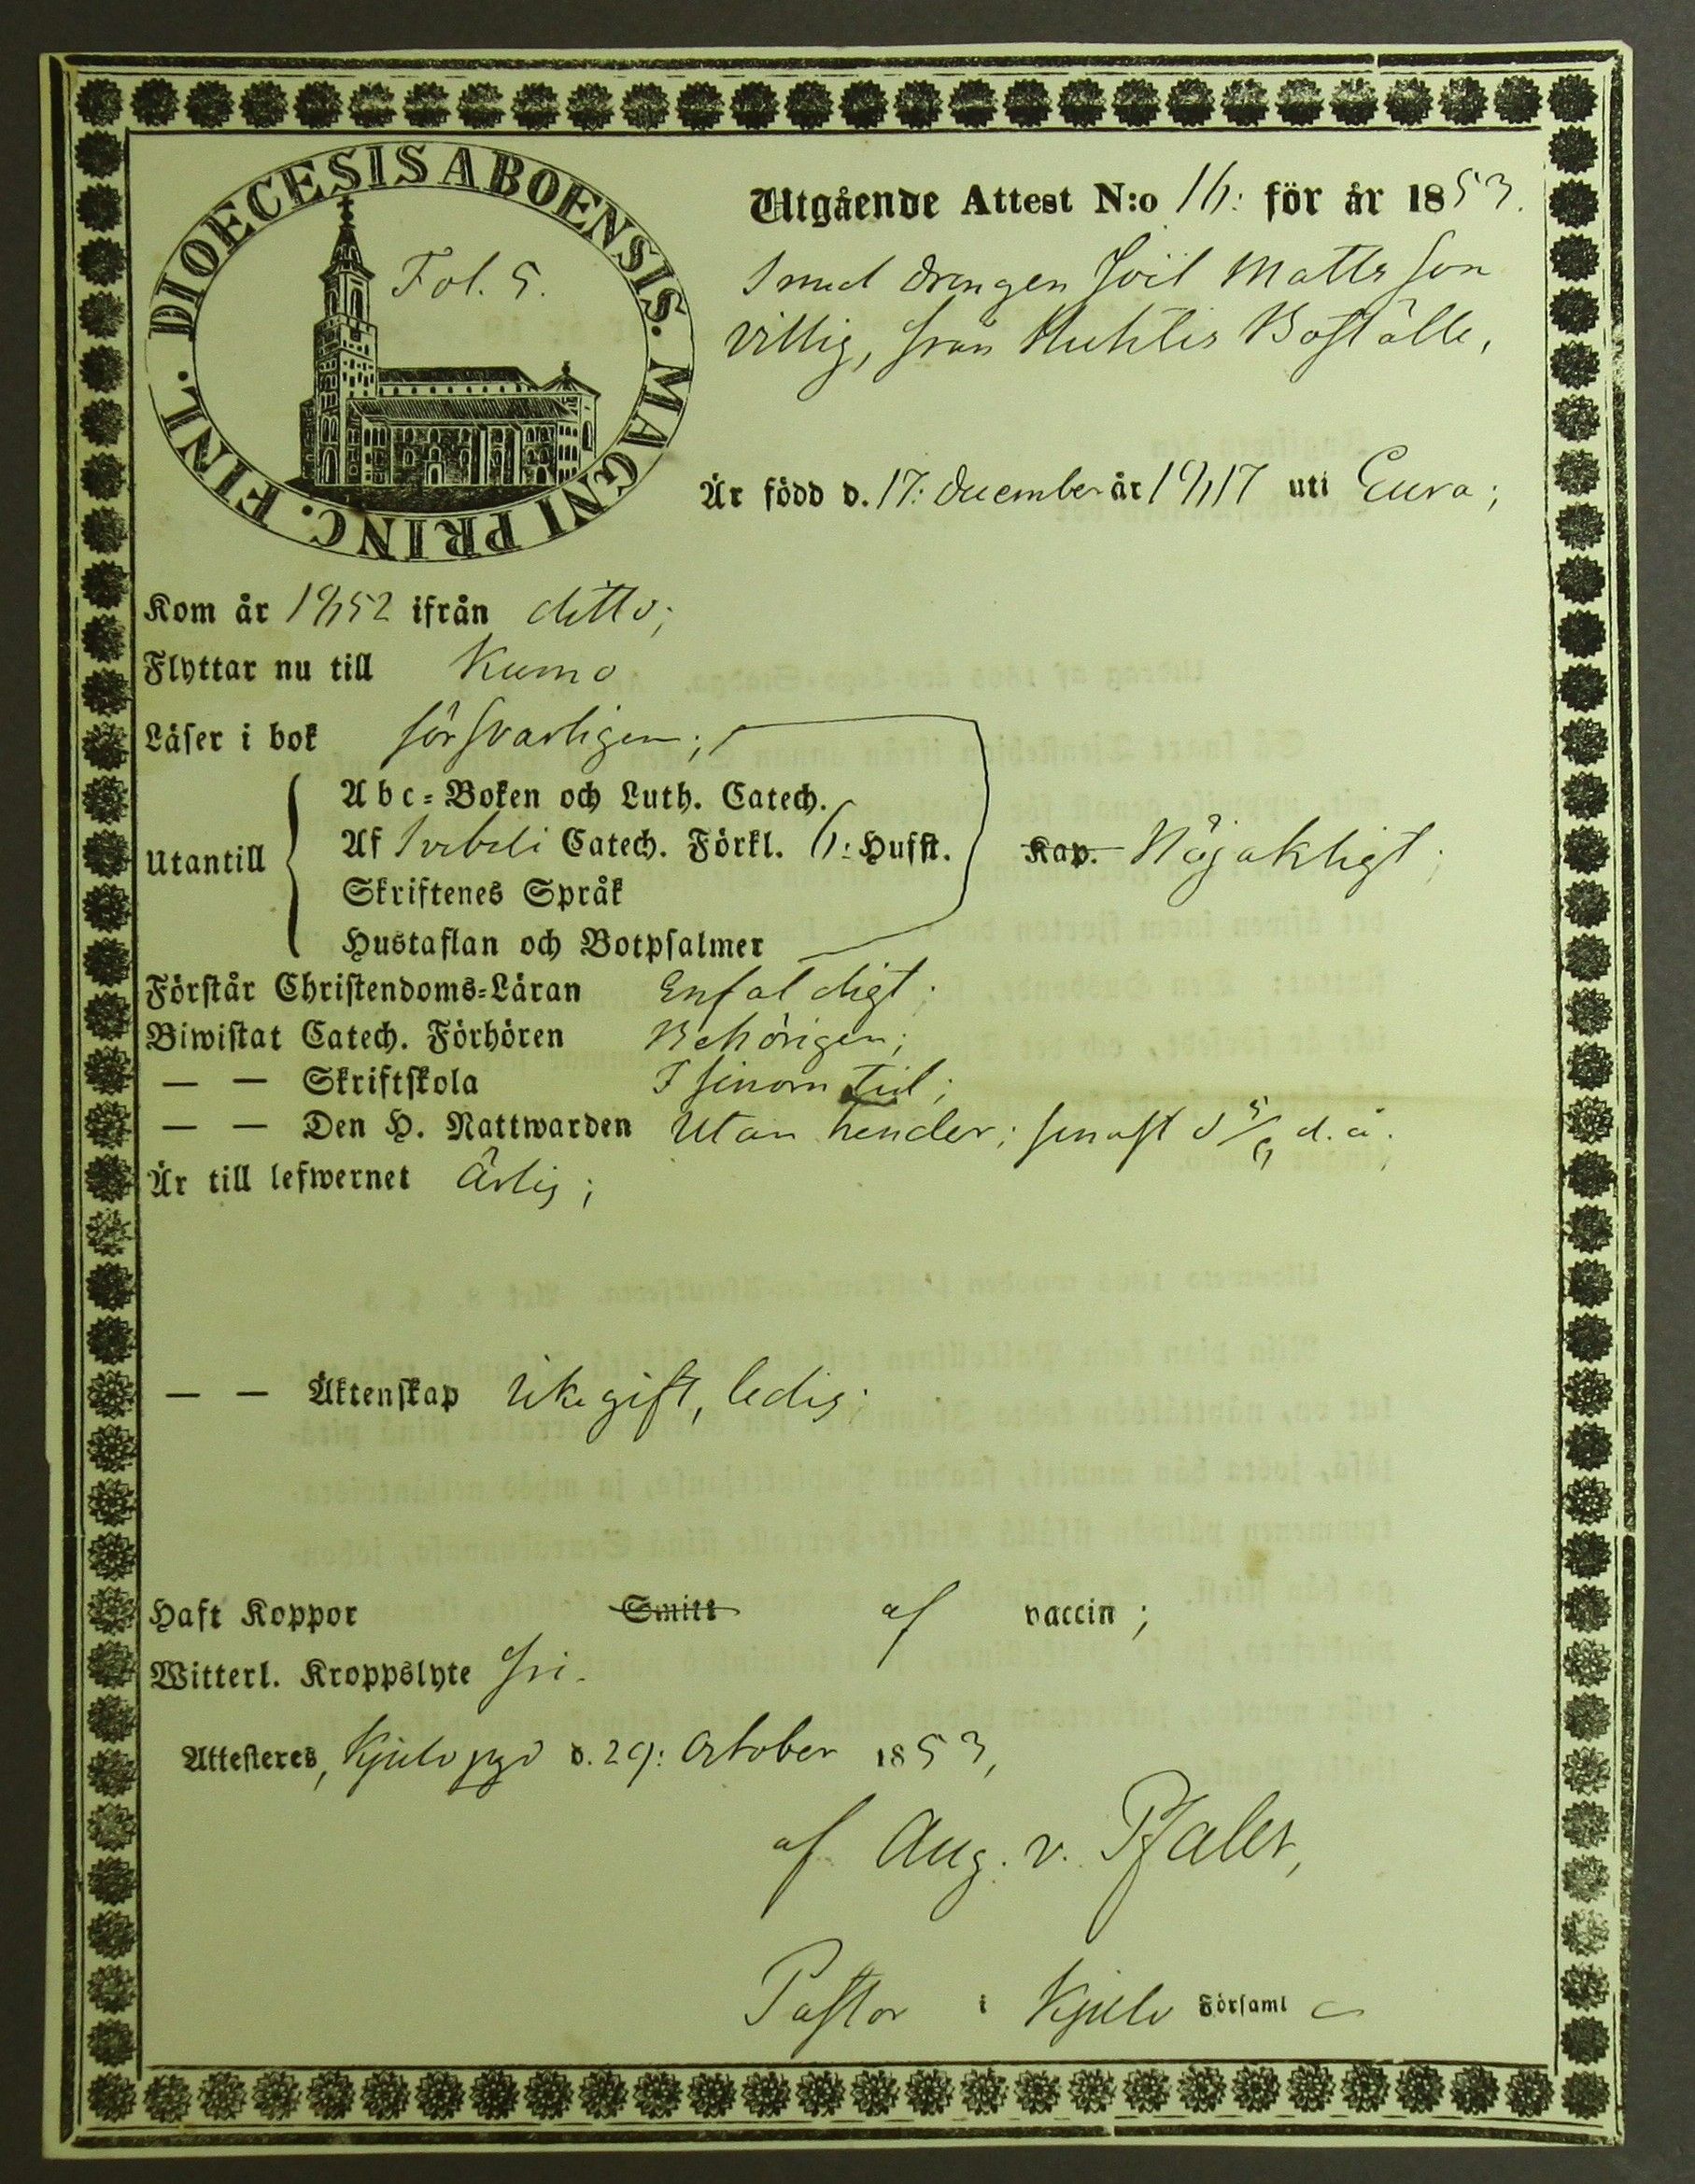 DIOECESIS ABOENSIS. MAGNI PRINC. FINL.
Fol. 5.
Utgående Attest N:o 16: för år 1853.
Smed drengen Joil Mattsson
Villig, från Huhtis Boställe,
Är född d. 17: December år 1817 uti Eura;
Kom år 1852 ifrån ditto;
Flyttar nu till Kumo
Läser i bok försvarligen;
Utantill
Abc-Boken och Luth. Catech.
Af Svebeli Catech. Förkl. 6: Hufst. Kap. Nöjaktigt;
Skriftenes Språk
Hustaflan och Botpsalmer
Förstår Christendoms-Läran Enfaldigt.
Biwistat Catech. Förhören Behörigen;
— — Skriftskola I sinom tid;
— — Den H. Nattwarden Utan hinder; senast d 5/6 d. å.
Är till lefwernet Ärlig;
— — Äktenskap icke gift, ledig;
Haft Koppor Smitt af vaccin;
Witterl. Kroppslyte fri.
Attesteres, Kjulo pgd d. 29: October 1853,
af Aug. v. Pfaler,
Pastor i Kjulo Församl